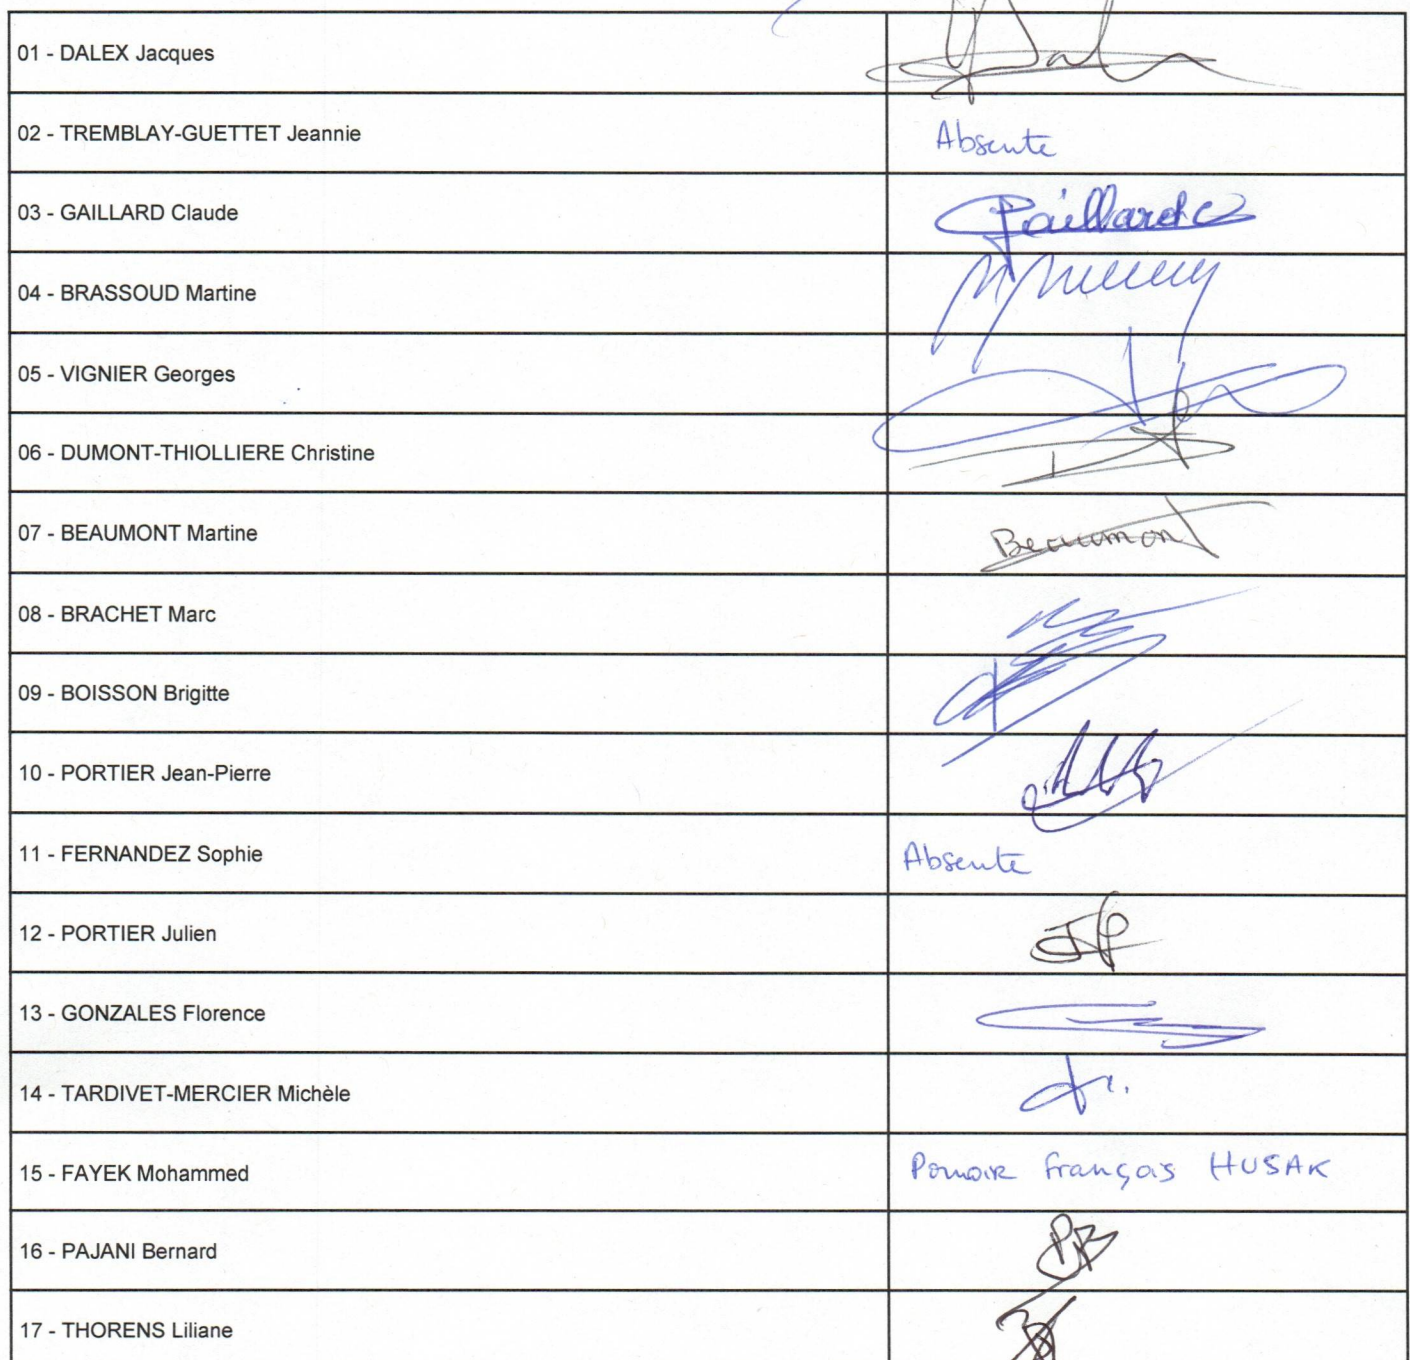 01 - DALEX Jacques
02 - TREMBLAY-GUETTET Jeannie Absente
03 - GAILLARD Claude Gaillard
04 - BRASSOUD Martine
05 - VIGNIER Georges
06 - DUMONT-THIOLLIERE Christine
07 - BEAUMONT Martine Beaumont
08 - BRACHET Marc
09 - BOISSON Brigitte
10 - PORTIER Jean-Pierre
11 - FERNANDEZ Sophie Absente
12 - PORTIER Julien JP
13 - GONZALES Florence
14 - TARDIVET-MERCIER Michèle
15 - FAYEK Mohammed Pouvoir François HUSAK
16 - PAJANI Bernard PB
17 - THORENS Liliane